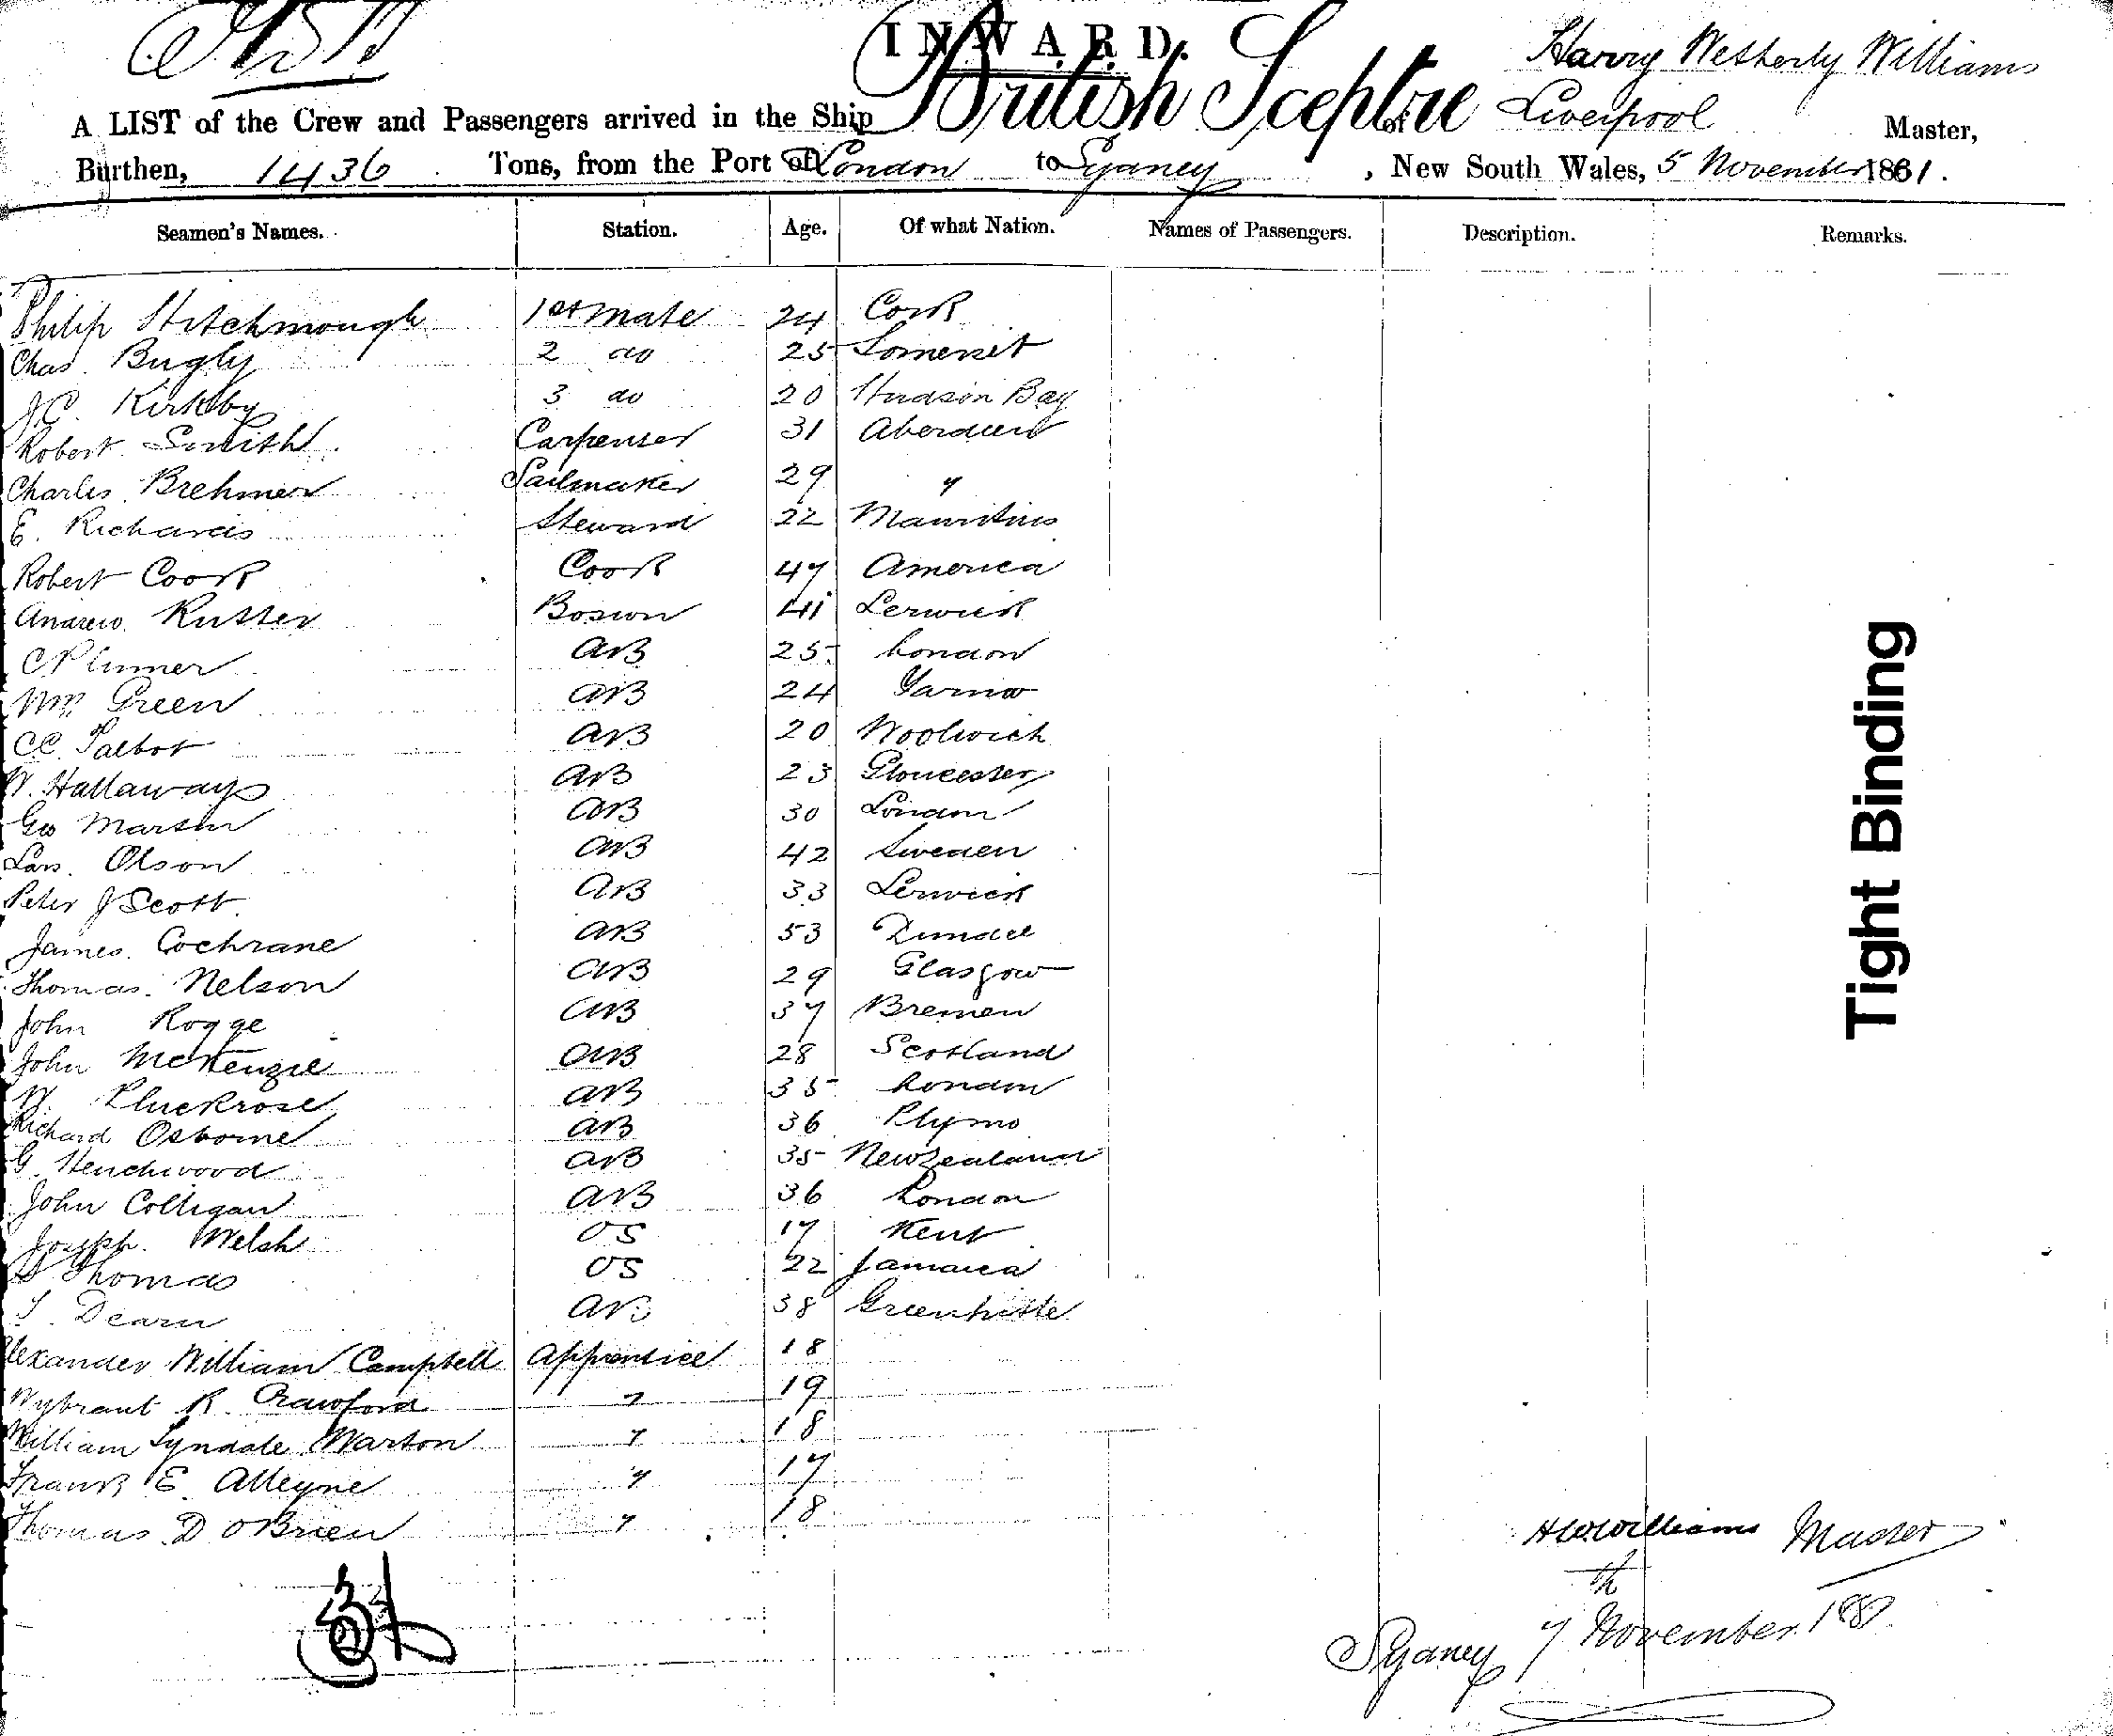 INWARD.
A LIST of the Crew and Passengers arrived in the Ship British Sceptre of Liverpool Harry Wetherly Williams Master,
Burthen, 1436 Tons, from the Port of London to Sydney, New South Wales, 5 November 1881.
Seamen's Names. Station. Age. Of what Nation. Names of Passengers. Description. Remarks.
Philip Hitchmough 1st Mate 24 Cork
Chas. Bugly 2 do 25 Somerset
J.C. Kirkby 3 do 20 Hudson Bay
Robert Smith Carpenter 31 Aberdeen
Charles Brehmer Sailmaker 29 "
E. Richards Steward 22 Mauritius
Robert Cook Cook 47 America
Andrew Rutter Bosun 41 Lerwick
C Plumer AB 25 London
Wm Green AB 24 Yarmo
CC. Talbot AB 20 Woolwich
W. Hallaways AB 23 Gloucester
Geo Martin AB 30 London
Lars. Olson AB 42 Sweden
Peter J Scott AB 33 Lerwick
James. Cochrane AB 53 Dundee
Thomas. Nelson AB 29 Glasgow
John Rogge AB 37 Bremen
John McKenzie AB 28 Scotland
W. Pluckrose AB 35 London
Richard Osborne AB 36 Plymo
G. Henchwood AB 35 New Zealand
John Colligan AB 36 London
Joseph. Welsh OS 17 Kent
Thomas OS 22 Jamaica
Dearn AB 38 Greenhithe
Alexander William Campbell Apprentice 18
Wybrant R. Crawford " 19
William Tyndale Warton " 18
Frank E. Alleyne " 17
Thomas D OBrien " 18
Tight Binding
HWWilliams Master
Sydney 7th November 1881